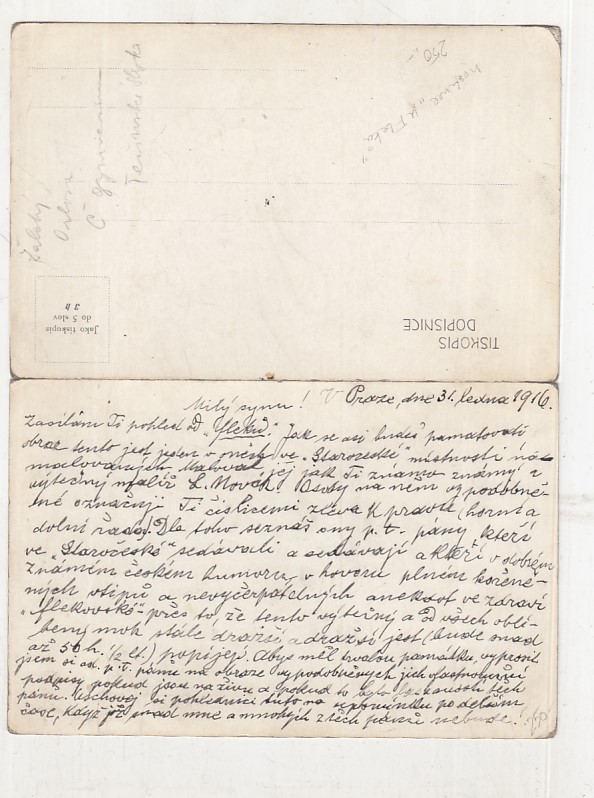 250,-
hostinec „U Fleků"
Žaloby
Orlová
Č gymnasium
Těšínsko
Jako tiskopis
do 5 slov
3 h
TISKOPIS
DOPISNICE
Milý synu! V Praze, dne 31. ledna 1916.
Zasílám Ti pohled od „Fleků". Jak se asi budeš pamatovati
obraz tento jest jeden v „Staročeské" místnosti
malovaných. Maloval jej jak Ti známo známý a
výtečný malíř L. Novák. Osoby na něm vypodobně-
né označuji Ti číslicemi zleva k pravé (horní a
dolní řada). Dle toho seznáš ony p. t. pány, kteří
ve „Staročeské" sedávali a sedávají a kteří v dobrém
známém českém humoru, v hovoru plném kořeně-
ných vtipů a nevyčerpatelných anekdot ve zdraví
„flekovské" přes to, že tento výtečný a od všech oblí-
bený mok stále dražší a dražší jest (bude snad
až 50 h. 1/2 lt.) popíjejí. Abys měl trvalou památku, vyprosil
jsem si od p. t. pánů na obraze vypodobených jich vlastnoruční
podpisy pokud jsou na živu a pokud to bylo lze
pánů. Uschovej si pohlednici tuto na upomínku po delším
čase, když již snad mne a mnohých z těch pánů nebude!